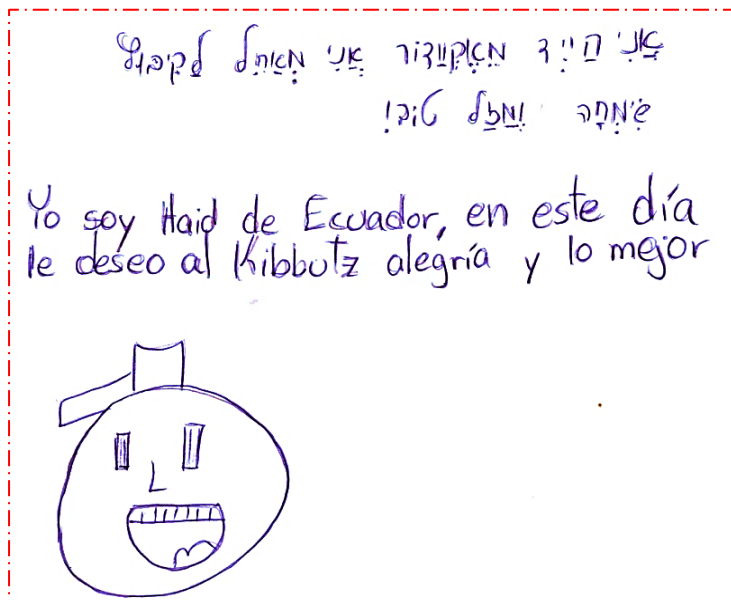 אֲנִי הַיִיד מֵאֶקְוָודוֹר אֲנִי מְאַחֵל לַקִיבּוּץ
שִׂמְחָה וּמַזַל טוֹב!
Yo soy Haid de Ecuador, en este día
le deseo al Kibbutz alegría y lo mejor